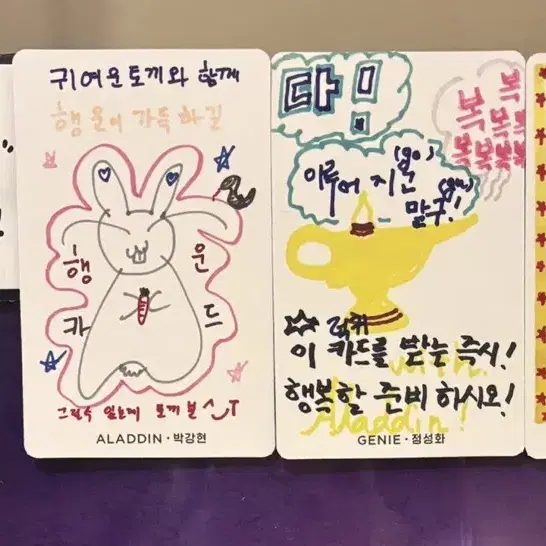 귀여운토끼와 함께
행운이 가득하길
행운
카드
그릴수 있는게 토끼 뿐 ^_T
ALADDIN · 박강현
다!
이루어 지구 (go)
말구! (gu)
복
복복
복복
복복복복
럭키
이 카드를 받는 즉시!
행복할 준비 하시오!
with.
Aladdin!
GENIE · 정성화